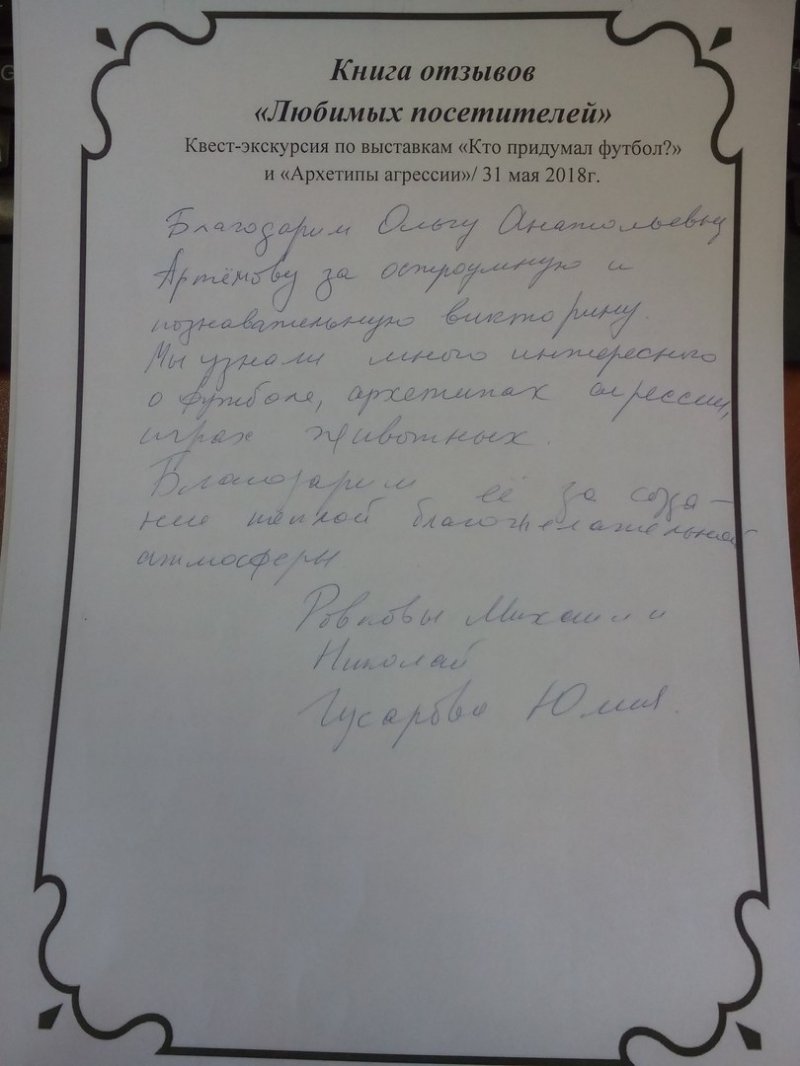 Книга отзывов
«Любимых посетителей»
Квест-экскурсия по выставкам «Кто придумал футбол?»
и «Архетипы агрессии»/ 31 мая 2018г.
Благодарим Ольгу Анатольевну
Артёмову за остроумную и
познавательную викторину.
Мы узнали много интересного
о футболе, архетипах агрессии,
играх животных.
Благодарим её за созда-
ние тёплой благожелательной
атмосферы
Михаил и
Николай
Гусарова Юлия.